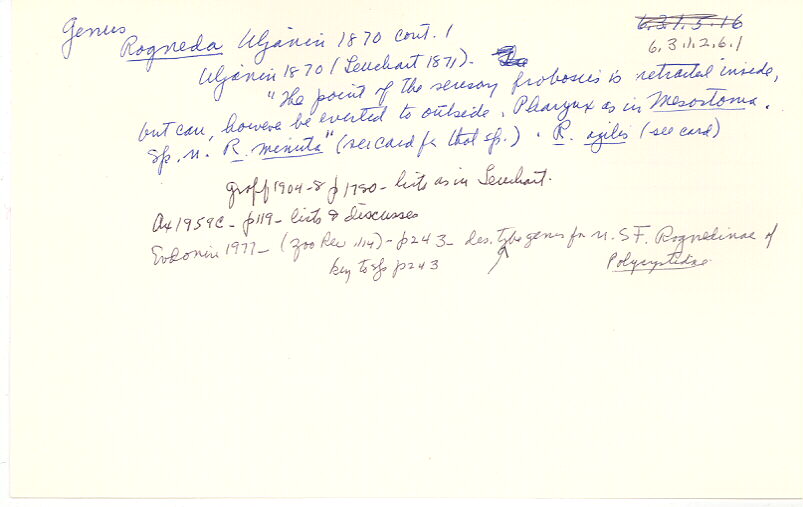 Genus
Rogneda Uljanin 1870 cont. 1
6.3.1.5.16
6.3.1.2.6.1
Uljanin 1870 (Leuckart 1871).
"The point of the sensory proboscis is retracted inside,
but can, however be everted to outside. Pharynx as in Mesostoma.
sp. n. R. minuta" (see card for that sp.). R. agilis (see card)
Graff 1904-8 p 1780 - lists as in Leuckart.
Ax 1959c - p119 - lists & discusses
Evdonin 1977 - (Zoo Rec 114) - p243 - des. type genus for n. S F. Rognedinae of
Polycystidae
key to sp p243